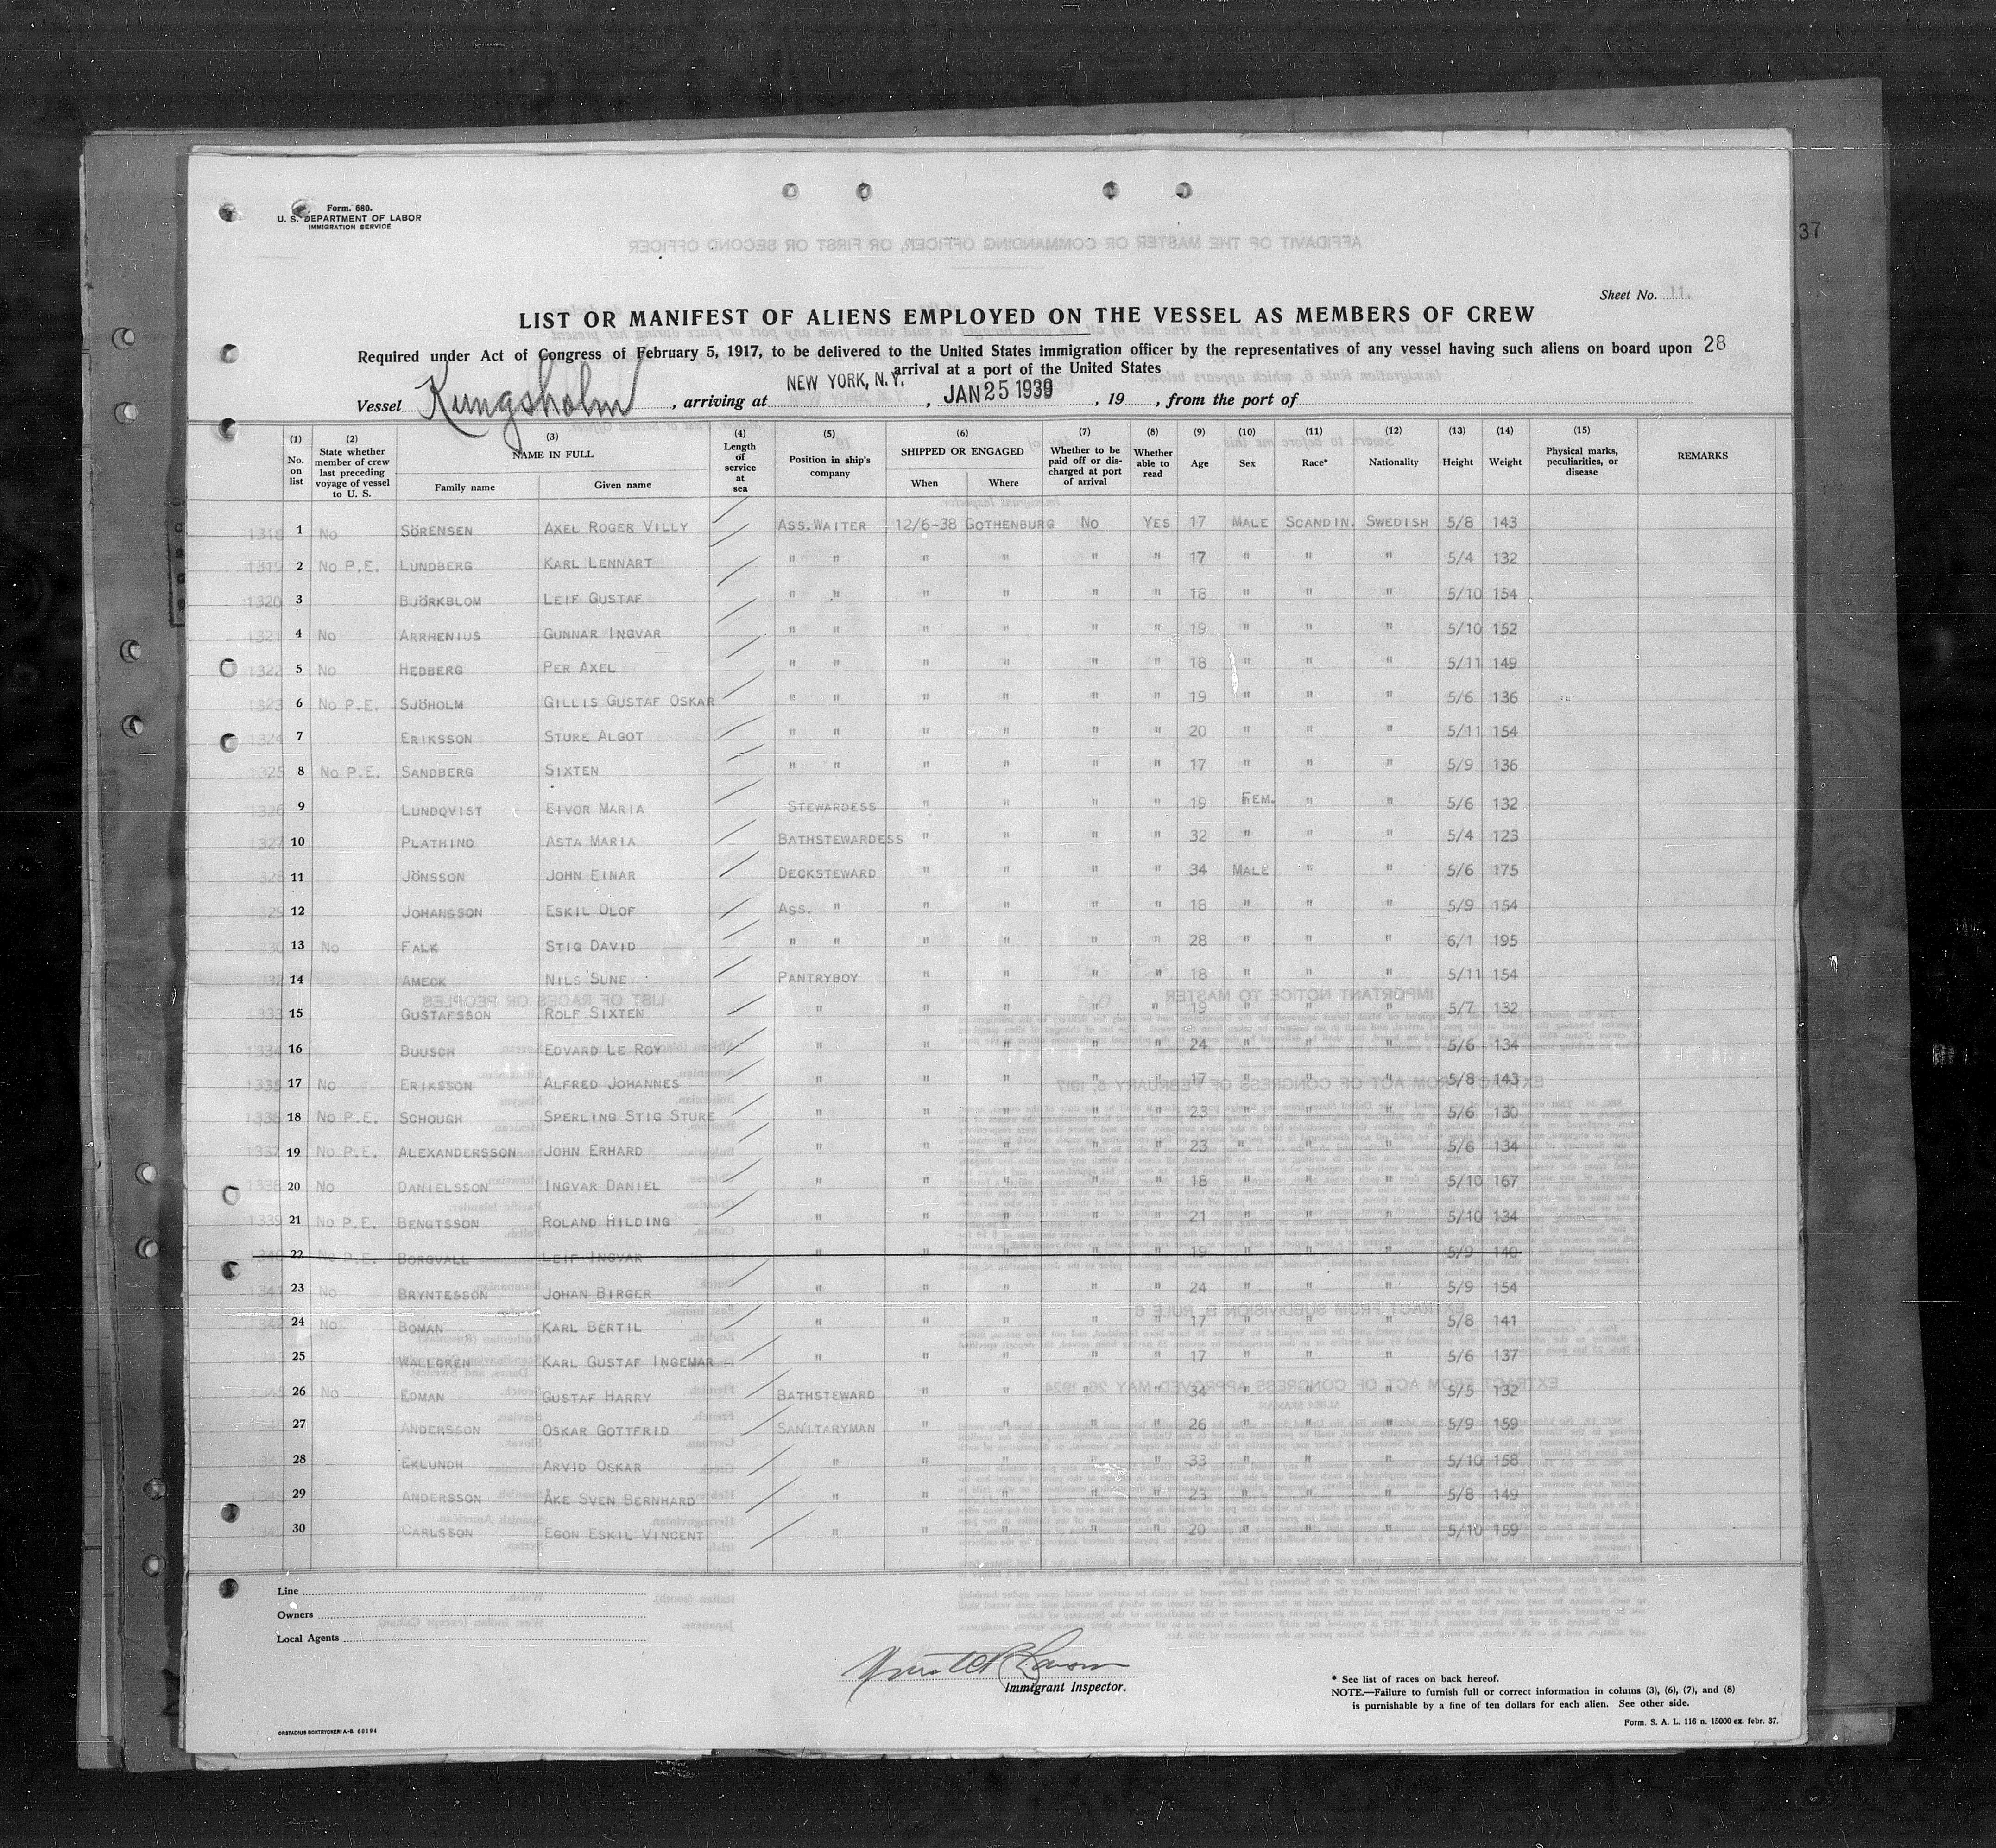 37
Form. 680.
U. S. DEPARTMENT OF LABOR
IMMIGRATION SERVICE
Sheet No. 11.
LIST OR MANIFEST OF ALIENS EMPLOYED ON THE VESSEL AS MEMBERS OF CREW
Required under Act of Congress of February 5, 1917, to be delivered to the United States immigration officer by the representatives of any vessel having such aliens on board upon 28
arrival at a port of the United States
Vessel Kungsholm, arriving at NEW YORK, N.Y., JAN 25 1939, 19 , from the port of
(1) No. on list (2) State whether member of crew last preceding voyage of vessel to U. S. (3) NAME IN FULL Family name Given name (4) Length of service at sea (5) Position in ship's company (6) SHIPPED OR ENGAGED When Where (7) Whether to be paid off or discharged at port of arrival (8) Whether able to read (9) Age (10) Sex (11) Race* (12) Nationality (13) Height (14) Weight (15) Physical marks, peculiarities, or disease REMARKS
1318 1 No SÖRENSEN AXEL ROGER VILLY ASS.WAITER 12/6-38 GOTHENBURG No YES 17 MALE SCANDIN. SWEDISH 5/8 143
1319 2 No P.E. LUNDBERG KARL LENNART " " " " " " 17 " " " 5/4 132
1320 3 BJÖRKBLOM LEIF GUSTAF " " " " " " 18 " " " 5/10 154
1321 4 No ARRHENIUS GUNNAR INGVAR " " " " " " 19 " " " 5/10 152
1322 5 No HEDBERG PER AXEL " " " " " " 18 " " " 5/11 149
1323 6 No P.E. SJÖHOLM GILLIS GUSTAF OSKAR " " " " " " 19 " " " 5/6 136
1324 7 ERIKSSON STURE ALGOT " " " " " " 20 " " " 5/11 154
1325 8 No P.E. SANDBERG SIXTEN " " " " " " 17 " " " 5/9 136
1326 9 LUNDQVIST EIVOR MARIA STEWARDESS " " " " 19 FEM. " " 5/6 132
1327 10 PLATHINO ASTA MARIA BATHSTEWARDESS " " " " 32 " " " 5/4 123
1328 11 JÖNSSON JOHN EINAR DECKSTEWARD " " " " 34 MALE " " 5/6 175
1329 12 JOHANSSON ESKIL OLOF ASS. " " " " " 18 " " " 5/9 154
1330 13 No FALK STIG DAVID " " " " " " 28 " " " 6/1 195
1332 14 AMECK NILS SUNE PANTRYBOY " " " " 18 " " " 5/11 154
1333 15 GUSTAFSSON ROLF SIXTEN " " " " " 19 " " " 5/7 132
1334 16 BUUSCH EDVARD LE ROY " " " " " 24 " " " 5/6 134
1335 17 No ERIKSSON ALFRED JOHANNES " " " " " 17 " " " 5/8 143
1336 18 No P.E. SCHOUGH SPERLING STIG STURE " " " " " 23 " " " 5/6 130
1337 19 No P.E. ALEXANDERSSON JOHN ERHARD " " " " " 23 " " " 5/6 134
1338 20 No DANIELSSON INGVAR DANIEL " " " " " 18 " " " 5/10 167
1339 21 No P.E. BENGTSSON ROLAND HILDING " " " " " 21 " " " 5/10 134
1340 22 No P.E. BORGVALL LEIF INGVAR " " " " " 19 " " " 5/9 140
1341 23 No BRYNTESSON JOHAN BIRGER " " " " " 24 " " " 5/9 154
1342 24 No BOMAN KARL BERTIL " " " " " 17 " " " 5/8 141
25 WALLGREN KARL GUSTAF INGEMAR " " " " " 17 " " " 5/6 137
26 No EDMAN GUSTAF HARRY BATHSTEWARD " " " " 34 " " " 5/5 132
27 ANDERSSON OSKAR GOTTFRID SANITARYMAN " " " " 26 " " " 5/9 159
28 EKLUNDH ARVID OSKAR " " " " " 33 " " " 5/10 158
29 ANDERSSON ÅKE SVEN BERNHARD " " " " " 23 " " " 5/8 149
30 CARLSSON EGON ESKIL VINCENT " " " " " 20 " " " 5/10 159
Line
Owners
Local Agents
Immigrant Inspector.
* See list of races on back hereof.
NOTE.—Failure to furnish full or correct information in colums (3), (6), (7), and (8)
is punishable by a fine of ten dollars for each alien. See other side.
ORSTADIUS BOKTRYCKERI A.-B. 60194
Form. S. A. L. 116 n. 15000 ex. febr. 37.